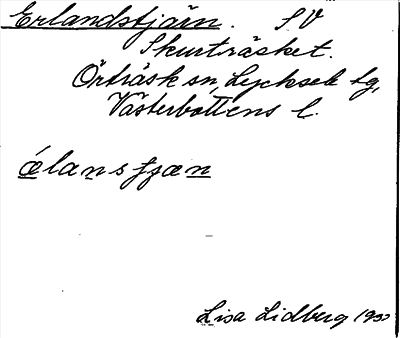 Erlandstjärn. SV
Skurträsket.
Örträsk sn, Lycksele tg,
Västerbottens l.
ǽlanstjæn
Lisa Lidberg 1930